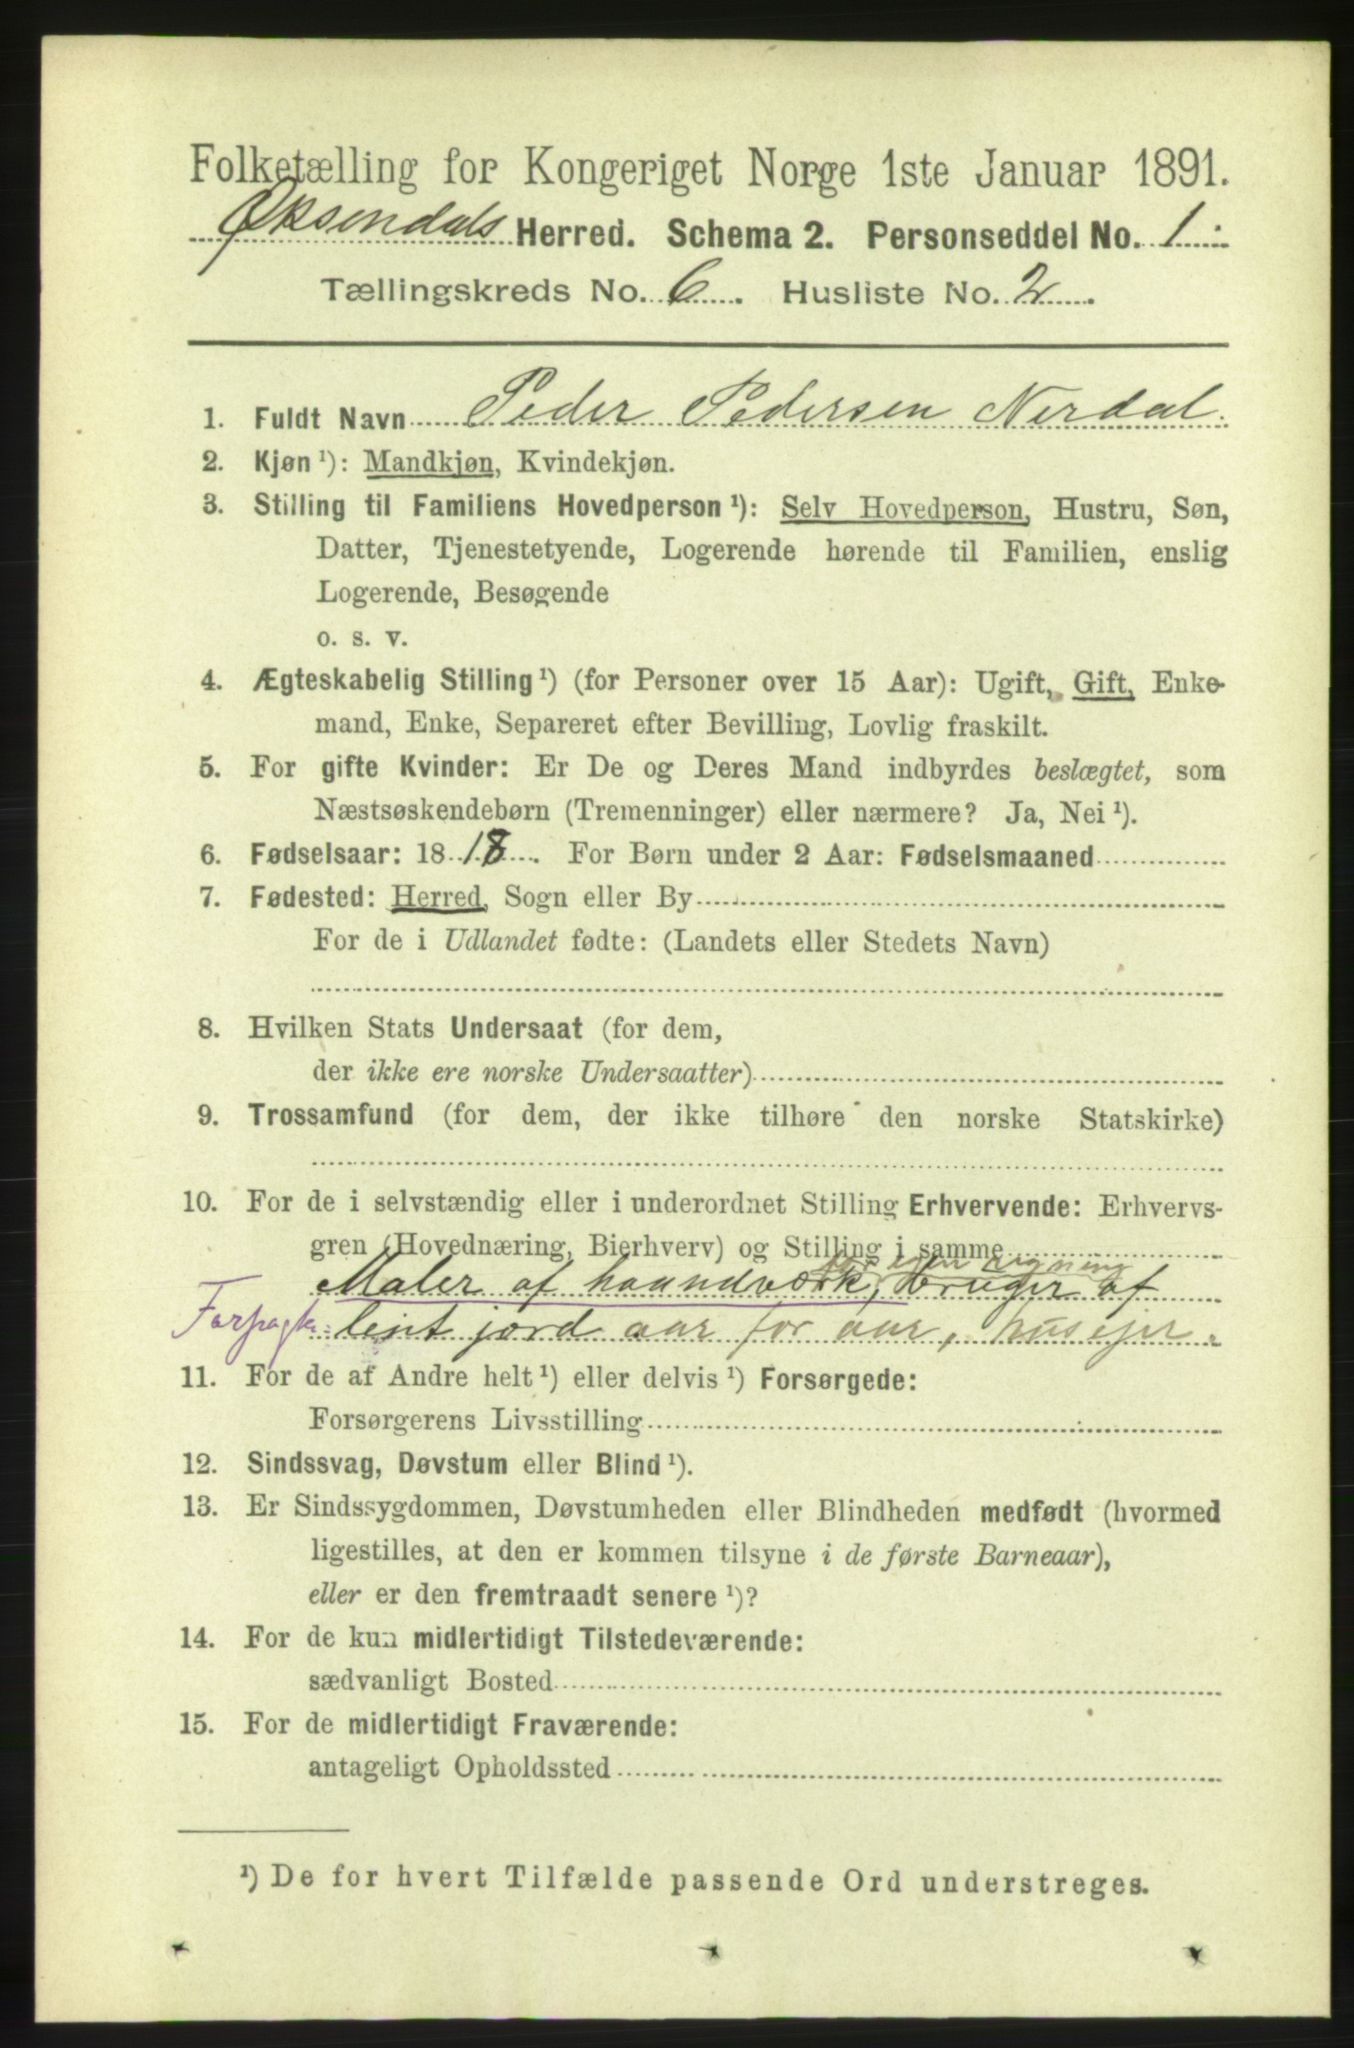 Folketælling for Kongeriget Norge 1ste Januar 1891.
Øksendals Herred. Schema 2. Personseddel No. 1.
Tællingskreds No. 6. Husliste No. 2.
1. Fuldt Navn Peder Pedersen Nerdal.
2. Kjøn ¹): Mandkjøn, Kvindekjøn.
3. Stilling til Familiens Hovedperson ¹): Selv Hovedperson, Hustru, Søn,
Datter, Tjenestetyende, Logerende hørende til Familien, enslig
Logerende, Besøgende
o. s. v.
4. Ægteskabelig Stilling ¹) (for Personer over 15 Aar): Ugift, Gift, Enke-
mand, Enke, Separeret efter Bevilling, Lovlig fraskilt.
5. For gifte Kvinder: Er De og Deres Mand indbyrdes beslægtet, som
Næstsøskendebørn (Tremenninger) eller nærmere? Ja, Nei ¹).
6. Fødselsaar: 1818. For Børn under 2 Aar: Fødselsmaaned
7. Fødested: Herred, Sogn eller By
For de i Udlandet fødte: (Landets eller Stedets Navn)
8. Hvilken Stats Undersaat (for dem,
der ikke ere norske Undersaatter)
9. Trossamfund (for dem, der ikke tilhøre den norske Statskirke)
10. For de i selvstændig eller i underordnet Stilling Erhvervende: Erhvervs-
gren (Hovednæring, Bierhverv) og Stilling i samme
for egen regning
Maler af haandværk, bruger af
Forpagter leiet jord aar for aar, huseier.
11. For de af Andre helt ¹) eller delvis ¹) Forsørgede:
Forsørgerens Livsstilling
12. Sindssvag, Døvstum eller Blind ¹).
13. Er Sindssygdommen, Døvstumheden eller Blindheden medfødt (hvormed
ligestilles, at den er kommen tilsyne i de første Barneaar),
eller er den fremtraadt senere ¹)?
14. For de kun midlertidigt Tilstedeværende:
sædvanligt Bosted
15. For de midlertidigt Fraværende:
antageligt Opholdssted
¹) De for hvert Tilfælde passende Ord understreges.